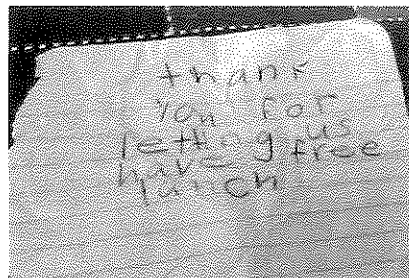 thank
you for
letting us
have free
lunch